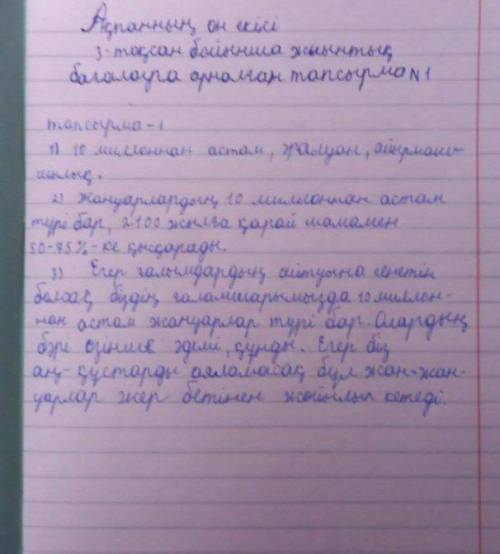 Ақпанның он екісі
3-тоқсан бойынша жиынтық
бағалауға арналған тапсырма №1
тапсырма-1
1) 10 миллионнан астам, жалған, айырмаш-
ылық.
2) Жануарлардың 10 миллионнан астам
түрі бар, 2100 жылға қарай шамамен
50-75%-ке қысқарады.
3) Егер ғалымдардың айтуына сенетін
болсақ біздің ғаламшарымызда 10 миллион-
нан астам жануарлар түрі бар. Олардың
бәрі өзінше әдемі, құнды. Егер біз
аң-құстарды аяламасақ бұл жан-жан-
уарлар жер бетінен жойылып кетеді.